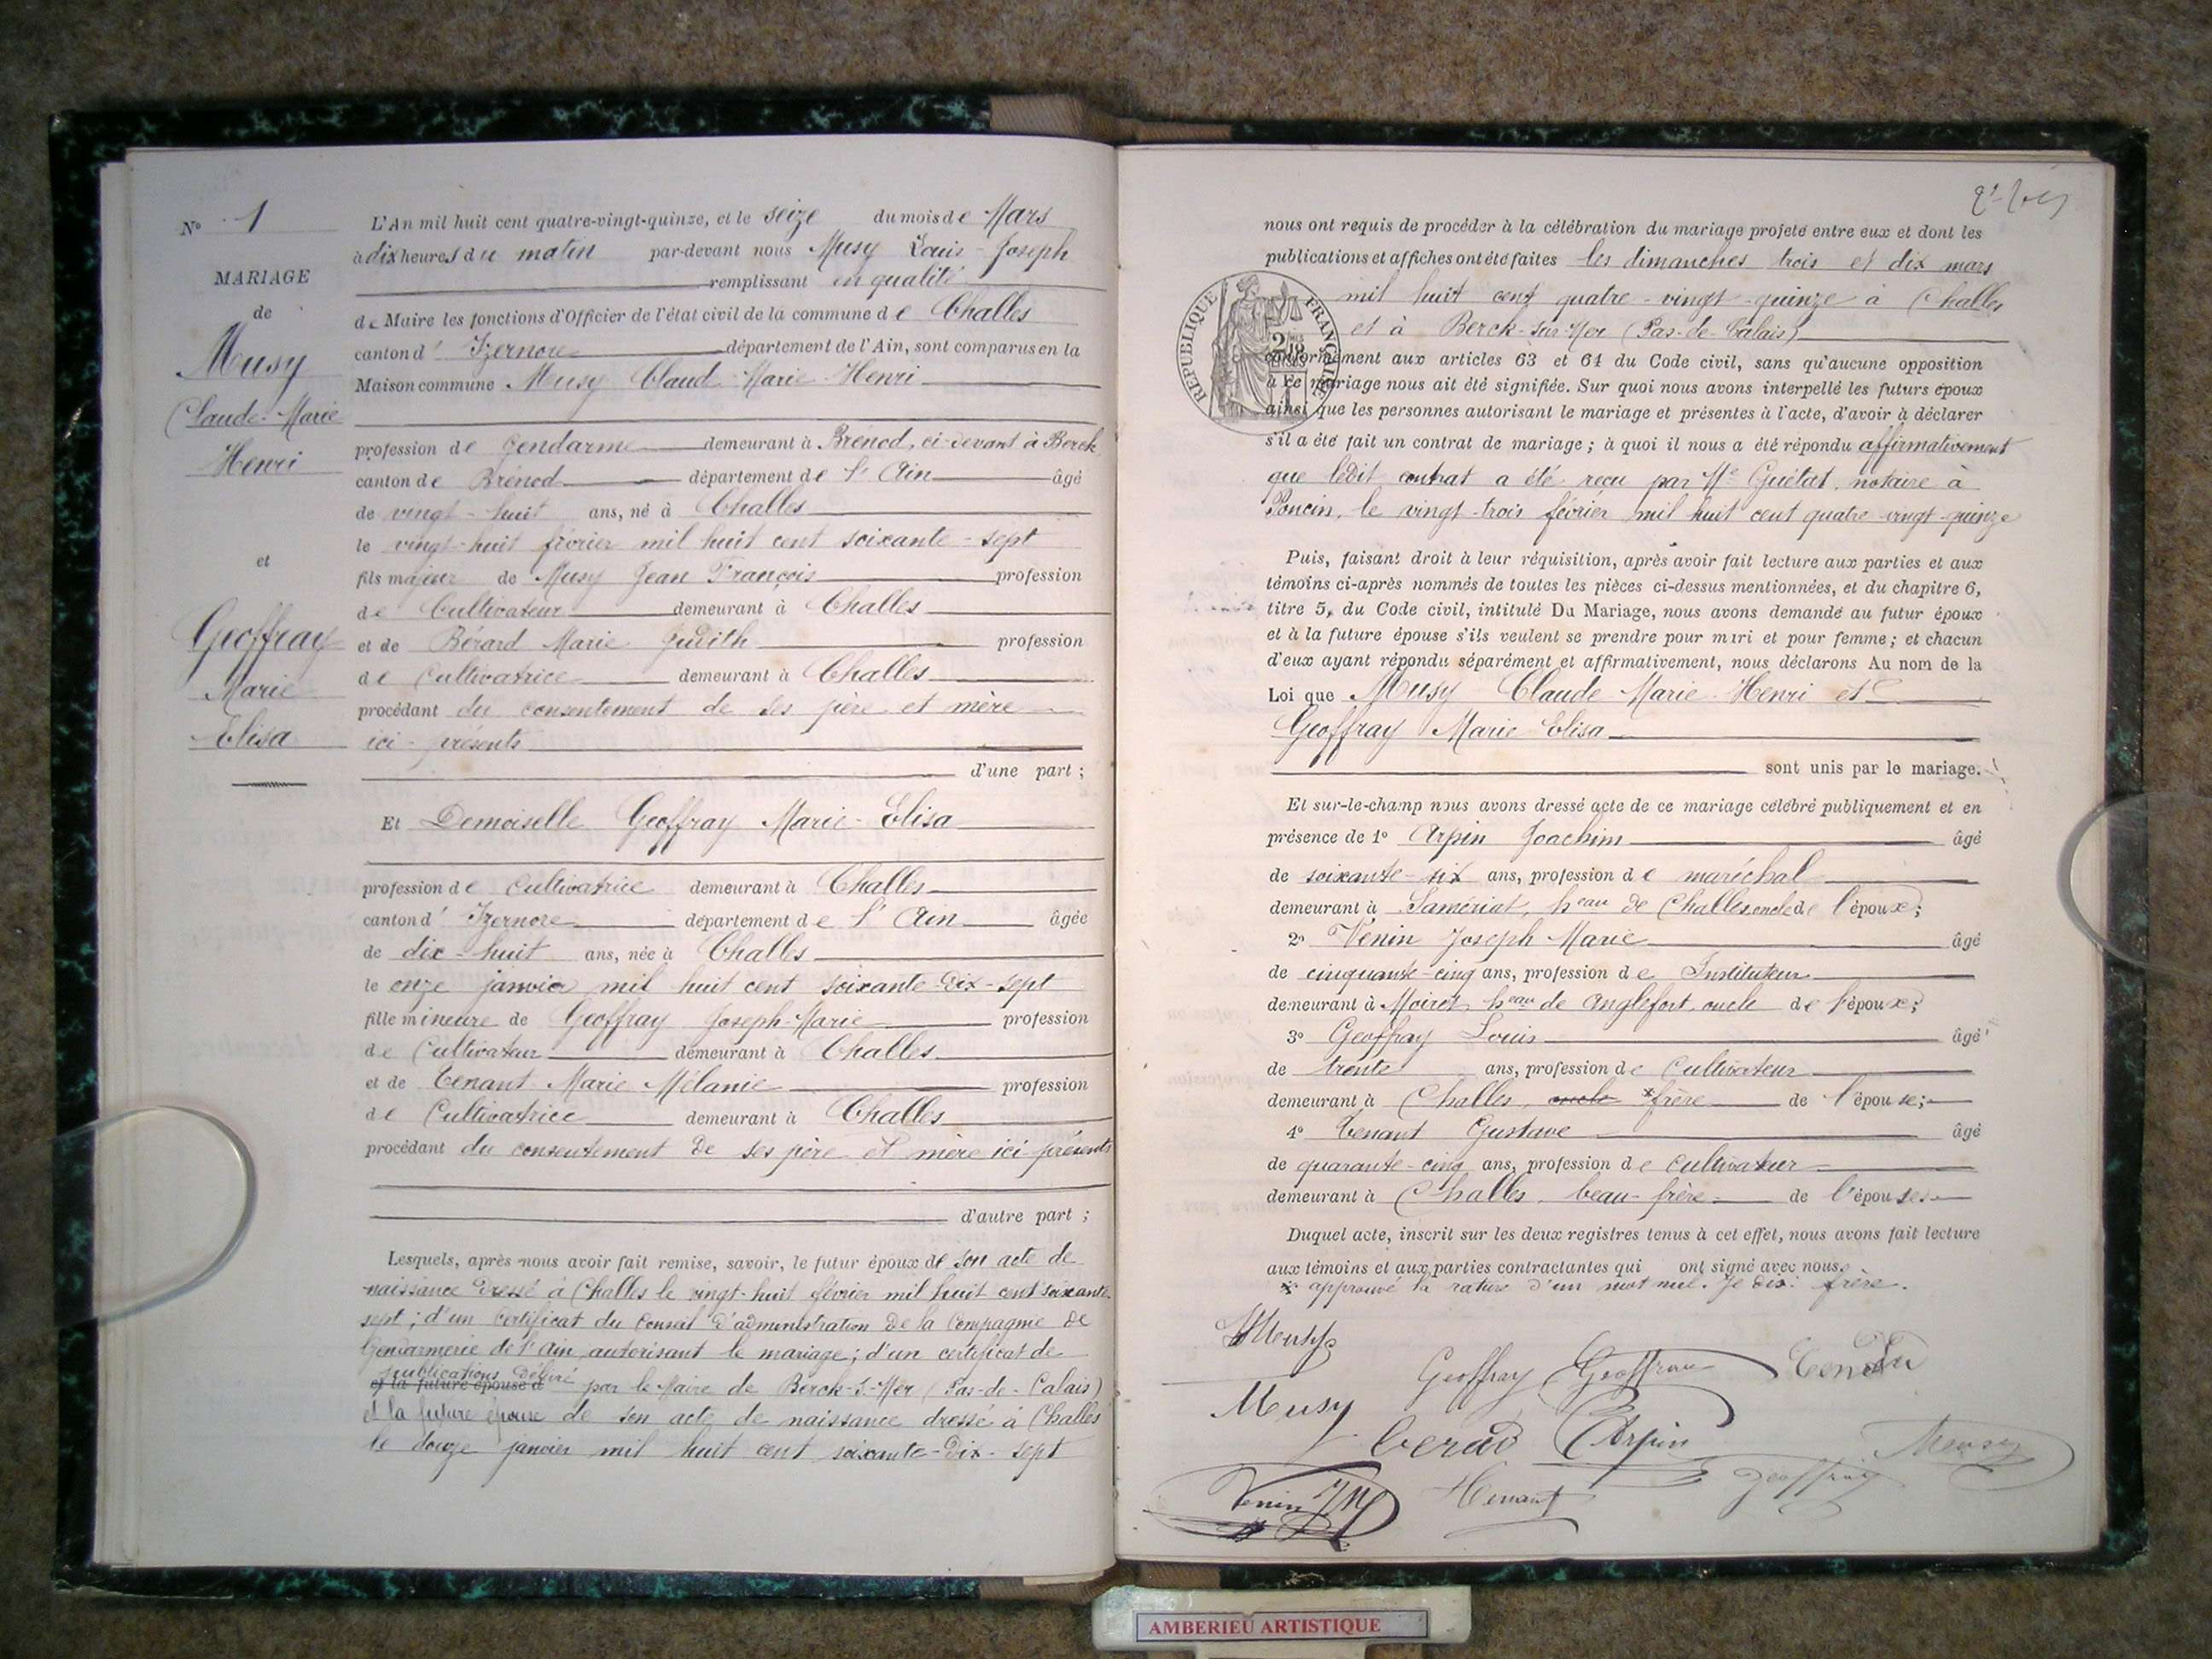 N° 1
MARIAGE
de
Musy
Claude-Marie
Henri
et
Geoffray
Marie
Elisa
L'An mil huit cent quatre-vingt-quinze, et le seize du mois de Mars
à dix heures du matin par-devant nous Musy Louis-Joseph
remplissant en qualité
de Maire les fonctions d'Officier de l'état civil de la commune de Challes
canton d' Izernore département de l'Ain, sont comparus en la
Maison commune Musy Claud Marie Henri
profession de gendarme demeurant à Brénod, ci-devant à Berck
canton de Brénod département de l'Ain âgé
de vingt-huit ans, né à Challes
le vingt-huit février mil huit cent soixante-sept
fils majeur de Musy Jean François profession
de Cultivateur demeurant à Challes
et de Bérard Marie Judith profession
de Cultivatrice demeurant à Challes
procédant du consentement de ses père et mère
ici-présents
d'une part ;
Et Demoiselle Geoffray Marie-Elisa
profession de cultivatrice demeurant à Challes
canton d' Izernore département de l'Ain âgée
de dix-huit ans, née à Challes
le onze janvier mil huit cent soixante-dix-sept
fille mineure de Geoffray Joseph-Marie profession
de Cultivateur demeurant à Challes
et de Tenant Marie Mélanie profession
de Cultivatrice demeurant à Challes
procédant du consentement de ses père et mère ici-présents
d'autre part ;
Lesquels, après nous avoir fait remise, savoir, le futur époux de son acte de
naissance dressé à Challes le vingt-huit février mil huit cent soixante-
sept ; d'un certificat du Conseil d'administration de la Compagnie de
Gendarmerie de l'Ain autorisant le mariage ; d'un certificat de
publications délivré
et la future épouse d par le Maire de Berck-S-Mer (Pas-de-Calais)
et la future épouse de son acte de naissance dressé à Challes
le douze janvier mil huit cent soixante-dix-sept
nous ont requis de procéder à la célébration du mariage projeté entre eux et dont les
publications et affiches ont été faites les dimanches trois et dix mars
mil huit cent quatre-vingt-quinze à Challes
et à Berck-sur-Mer (Pas-de-Calais)
RÉPUBLIQUE FRANÇAISE
conformément aux articles 63 et 64 du Code civil, sans qu'aucune opposition
à ce mariage nous ait été signifiée. Sur quoi nous avons interpellé les futurs époux
ainsi que les personnes autorisant le mariage et présentes à l'acte, d'avoir à déclarer
s'il a été fait un contrat de mariage ; à quoi il nous a été répondu affirmativement
que ledit contrat a été reçu par Me Guétat, notaire à
Poncin, le vingt-trois février mil huit cent quatre-vingt-quinze
Puis, faisant droit à leur réquisition, après avoir fait lecture aux parties et aux
témoins ci-après nommés de toutes les pièces ci-dessus mentionnées, et du chapitre 6,
titre 5, du Code civil, intitulé Du Mariage, nous avons demandé au futur époux
et à la future épouse s'ils veulent se prendre pour mari et pour femme ; et chacun
d'eux ayant répondu séparément et affirmativement, nous déclarons Au nom de la
Loi que Musy Claude-Marie-Henri et
Geoffray Marie Elisa
sont unis par le mariage.
Et sur-le-champ nous avons dressé acte de ce mariage célébré publiquement et en
présence de 1° Arpin Joachim âgé
de soixante-six ans, profession de maréchal
demeurant à Samériat, heau de Challes oncle de l'époux ;
2° Venin Joseph Marie âgé
de cinquante-cinq ans, profession de Instituteur
demeurant à Moiret heau de Anglefort, oncle de l'époux ;
3° Geoffray Louis âgé
de trente ans, profession de Cultivateur
demeurant à Challes, oncle *frère de l'épouse ;
4° Tenant Gustave âgé
de quarante-cinq ans, profession de cultivateur
demeurant à Challes, beau-frère de l'épouse.
Duquel acte, inscrit sur les deux registres tenus à cet effet, nous avons fait lecture
aux témoins et aux parties contractantes qui ont signé avec nous.
* approuvé la rature d'un mot nul. Je dis : frère.
Musy
Geoffray Geoffray
Musy
Berad Arpin Musy
Venin JM Tenant Geoffray
AMBERIEU ARTISTIQUE